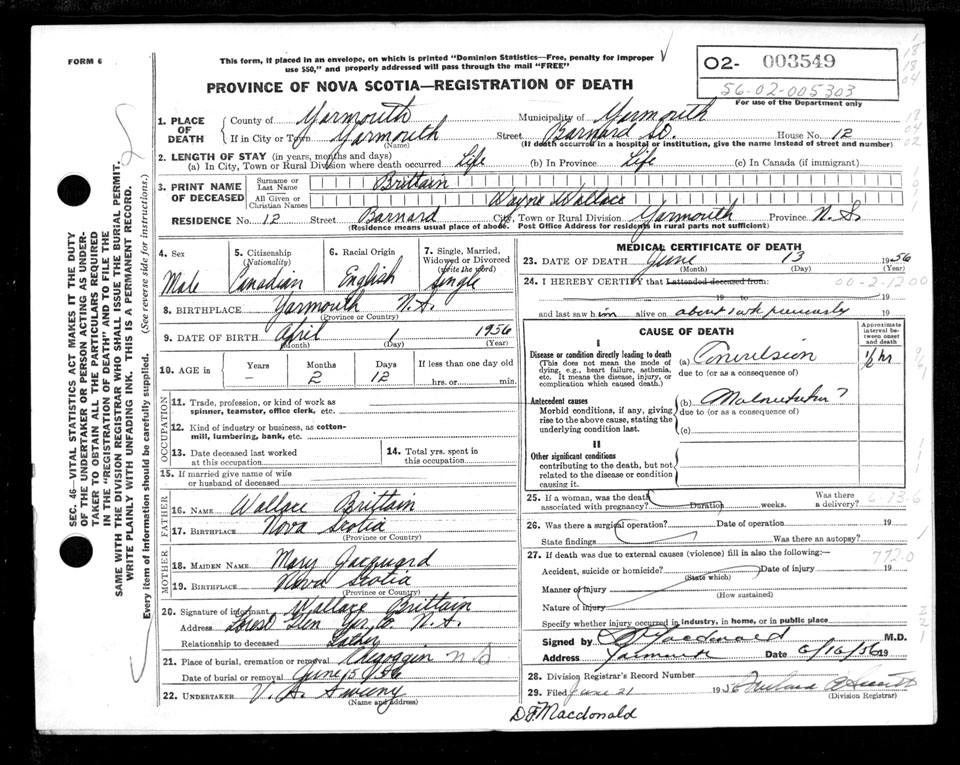 FORM 6
This form, if placed in an envelope, on which is printed "Dominion Statistics—Free, penalty for improper
use $50," and properly addressed will pass through the mail "FREE"
O2- 003549
56-02-005303
For use of the Department only
PROVINCE OF NOVA SCOTIA—REGISTRATION OF DEATH
1. PLACE OF DEATH
County of Yarmouth Municipality of Yarmouth
If in City or Town Yarmouth Street Barnard St. House No. 12
(Name) (If death occurred in a hospital or institution, give the name instead of street and number)
2. LENGTH OF STAY (in years, months and days)
(a) In City, Town or Rural Division where death occurred Life (b) In Province Life (c) In Canada (if immigrant)
3. PRINT NAME OF DECEASED
Surname or Last Name Brittain
All Given or Christian Names Wayne Wallace
RESIDENCE No. 12 Street Barnard City, Town or Rural Division Yarmouth Province N.S.
(Residence means usual place of abode. Post Office Address for residents in rural parts not sufficient)
4. Sex Male
5. Citizenship (Nationality) Canadian
6. Racial Origin English
7. Single, Married, Widowed or Divorced (write the word) Single
8. BIRTHPLACE Yarmouth N.S.
(Province or Country)
9. DATE OF BIRTH April 1 1956
(Month) (Day) (Year)
10. AGE in Years – Months 2 Days 12 If less than one day old hrs. or min.
OCCUPATION
11. Trade, profession, or kind of work as
spinner, teamster, office clerk, etc.
12. Kind of industry or business, as cotton-
mill, lumbering, bank, etc.
13. Date deceased last worked at this occupation
14. Total yrs. spent in this occupation
15. If married give name of wife
or husband of deceased
FATHER
16. NAME Wallace Brittain
17. BIRTHPLACE Nova Scotia
(Province or Country)
MOTHER
18. MAIDEN NAME Mary Jacquard
19. BIRTHPLACE Nova Scotia
(Province or Country)
20. Signature of informant Wallace Brittain
Address Glen Yar. Co. N.S.
Relationship to deceased Father
21. Place of burial, cremation or removal Chegoggin N S
Date of burial or removal June 15 1956
22. UNDERTAKER V. A. Sweeny
(Name and address)
MEDICAL CERTIFICATE OF DEATH
23. DATE OF DEATH June 13 1956
(Month) (Day) (Year)
24. I HEREBY CERTIFY that I attended deceased from: 00-2-1200
19 to 19
and last saw him alive on about 1 wk previously 19
CAUSE OF DEATH
Approximate interval between onset and death
I
Disease or condition directly leading to death
(This does not mean the mode of
dying, e.g., heart failure, asthenia,
etc. It means the disease, injury, or
complication which caused death.)
(a) Convulsion ½ hr
due to (or as a consequence of)
Antecedent causes
Morbid conditions, if any, giving
rise to the above cause, stating the
underlying condition last.
(b) Malnutrition ?
due to (or as a consequence of)
(c)
II
Other significant conditions
contributing to the death, but not
related to the disease or condition
causing it.
25. If a woman, was the death associated with pregnancy? Duration weeks. Was there a delivery?
26. Was there a surgical operation? Date of operation 19
State findings Was there an autopsy?
27. If death was due to external causes (violence) fill in also the following:—
7720
Accident, suicide or homicide? Date of injury 19
(State which)
Manner of injury
(How sustained)
Nature of injury
Specify whether injury occurred in industry, in home, or in public place
Signed by D F Macdonald M.D.
Address Yarmouth Date 6/16/56 19
28. Division Registrar's Record Number
29. Filed June 21 1956
(Division Registrar)
D.F. Macdonald
SEC. 46—VITAL STATISTICS ACT MAKES IT THE DUTY
OF THE UNDERTAKER OR PERSON ACTING AS UNDER-
TAKER TO OBTAIN ALL THE PARTICULARS REQUIRED
IN THE "REGISTRATION OF DEATH" AND TO FILE THE
SAME WITH THE DIVISION REGISTRAR WHO SHALL ISSUE THE BURIAL PERMIT.
WRITE PLAINLY WITH UNFADING INK. THIS IS A PERMANENT RECORD.
Every item of information should be carefully supplied. (See reverse side for instructions.)